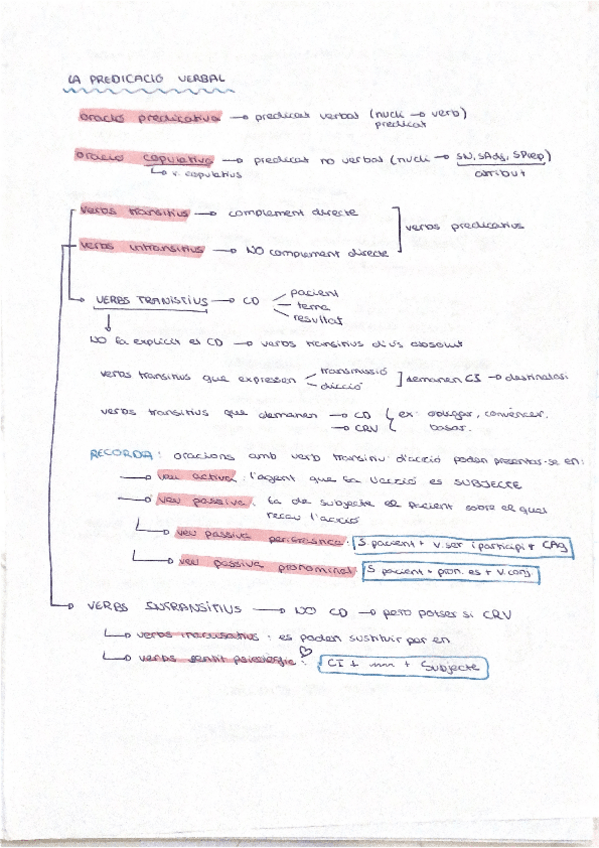 LA PREDICACIÓ VERBAL
oració predicativa → predicat verbal (nucli → verb)
predicat
oració copulativa → predicat no verbal (nucli → SN, SAdj, SPrep)
↳ v. copulatius
atribut
verbs transitius → complement directe
verbs predicatius
verbs intransitius → NO complement directe
VERBS TRANISTIUS → CD
pacient
tema
resultat
NO fa explícit es CD → verbs transitius d'ús absolut
verbs transitius que expressen
transmissió
dicció
] demanen CI → destinatari
verbs transitius que demanen → CD
→ CRV
ex: obligar, convèncer.
basar.
RECORDA: oracions amb verb transitiu d'acció poden presentar-se en:
→ veu activa: l'agent que fa l'acció es SUBJECTE
→ veu passiva: fa de subjecte el pacient sobre el qual
recau l'acció
→ veu passiva perifràstica: S. pacient + v. ser i participi + CAg
→ veu passiva pronominal: S pacient + pron. es + v. conj.
VERBS INTRANSITIUS → NO CD → pero potser si CRV
↳ verbs inacusatius: es poden sustituir per en
↳ verbs sentit psicològic: CI + mn + Subjecte